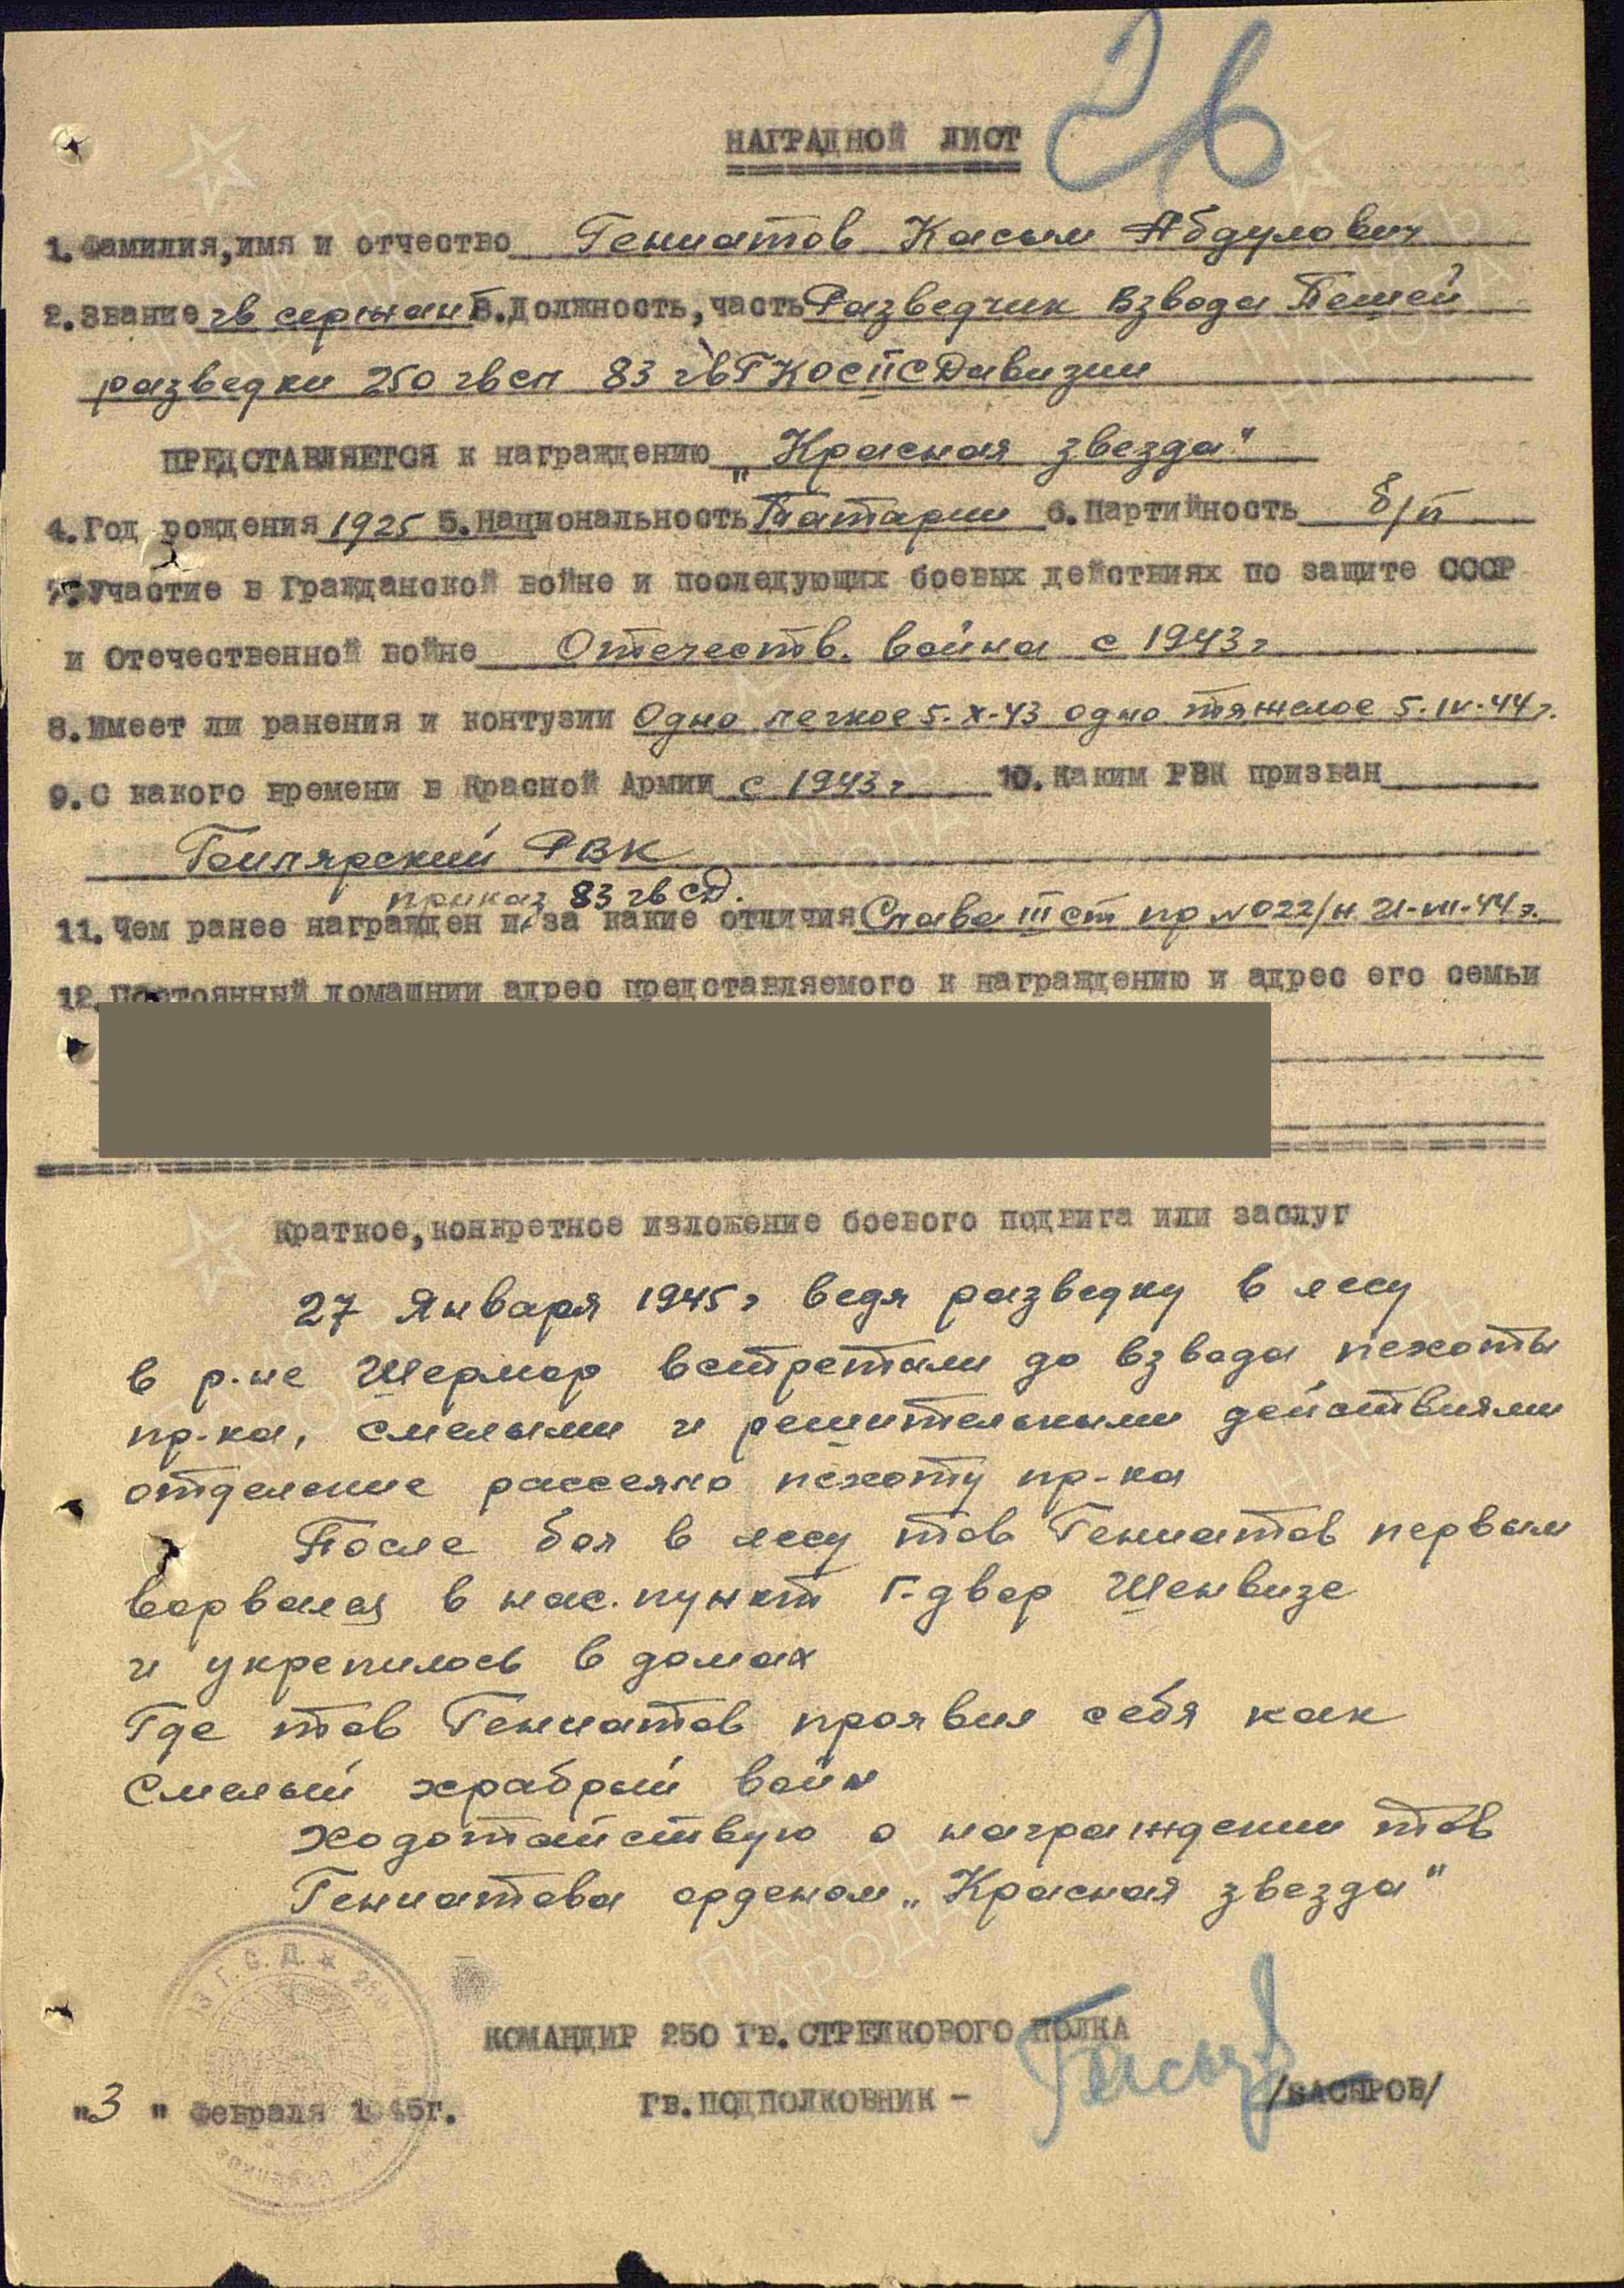 26
НАГРАДНОЙ ЛИСТ
1. Фамилия, имя и отчество Гениатов Касым Абдулович
2. Звание гв сержант 3. Должность, часть Разведчик Взвода Пешей
разведки 250 гвсп 83 гвГКОСIIСДивизии
ПРЕДСТАВЛЯЕТСЯ к награждению „Красная звезда"
4. Год рождения 1925 5. Национальность Татарин 6. Партийность б/п
7. Участие в Гражданской войне и последующих боевых действиях по защите СССР
и Отечественной войне Отечеств. война с 1943г
8. Имеет ли ранения и контузии Одно легкое 5.X-43 одно тяжелое 5.IV-44г.
9. С какого времени в Красной Армии с 1943г 10. Каким РВК призван
РВК
приказ 83 гв СД.
11. Чем ранее награжден и за какие отличия Слава III ст пр №022/н 21-VII-44г.
12. Постоянный домашний адрес представляемого к награждению и адрес его семьи
Краткое, конкретное изложение боевого подвига или заслуг
27 Января 1945г ведя разведку в лесу
в р-не Шермор встретили до взвода пехоты
пр-ка, смелыми и решительными действиями
отделение рассеяно пехоту пр-ка
После боя в лесу тов Гениатов первым
ворвался в нас. пункт Г-двор Шенвизе
и укрепилось в домах
Где тов Гениатов проявил себя как
Смелый храбрый войн
Ходотайствую о награждении тов
Гениатова орденом „Красная звезда"
КОМАНДИР 250 ГВ. СТРЕЛКОВОГО ПОЛКА
ГВ. ПОДПОЛКОВНИК - /БАСЫРОВ/
"3" февраля 1945г.
ПАМЯТЬ НАРОДА